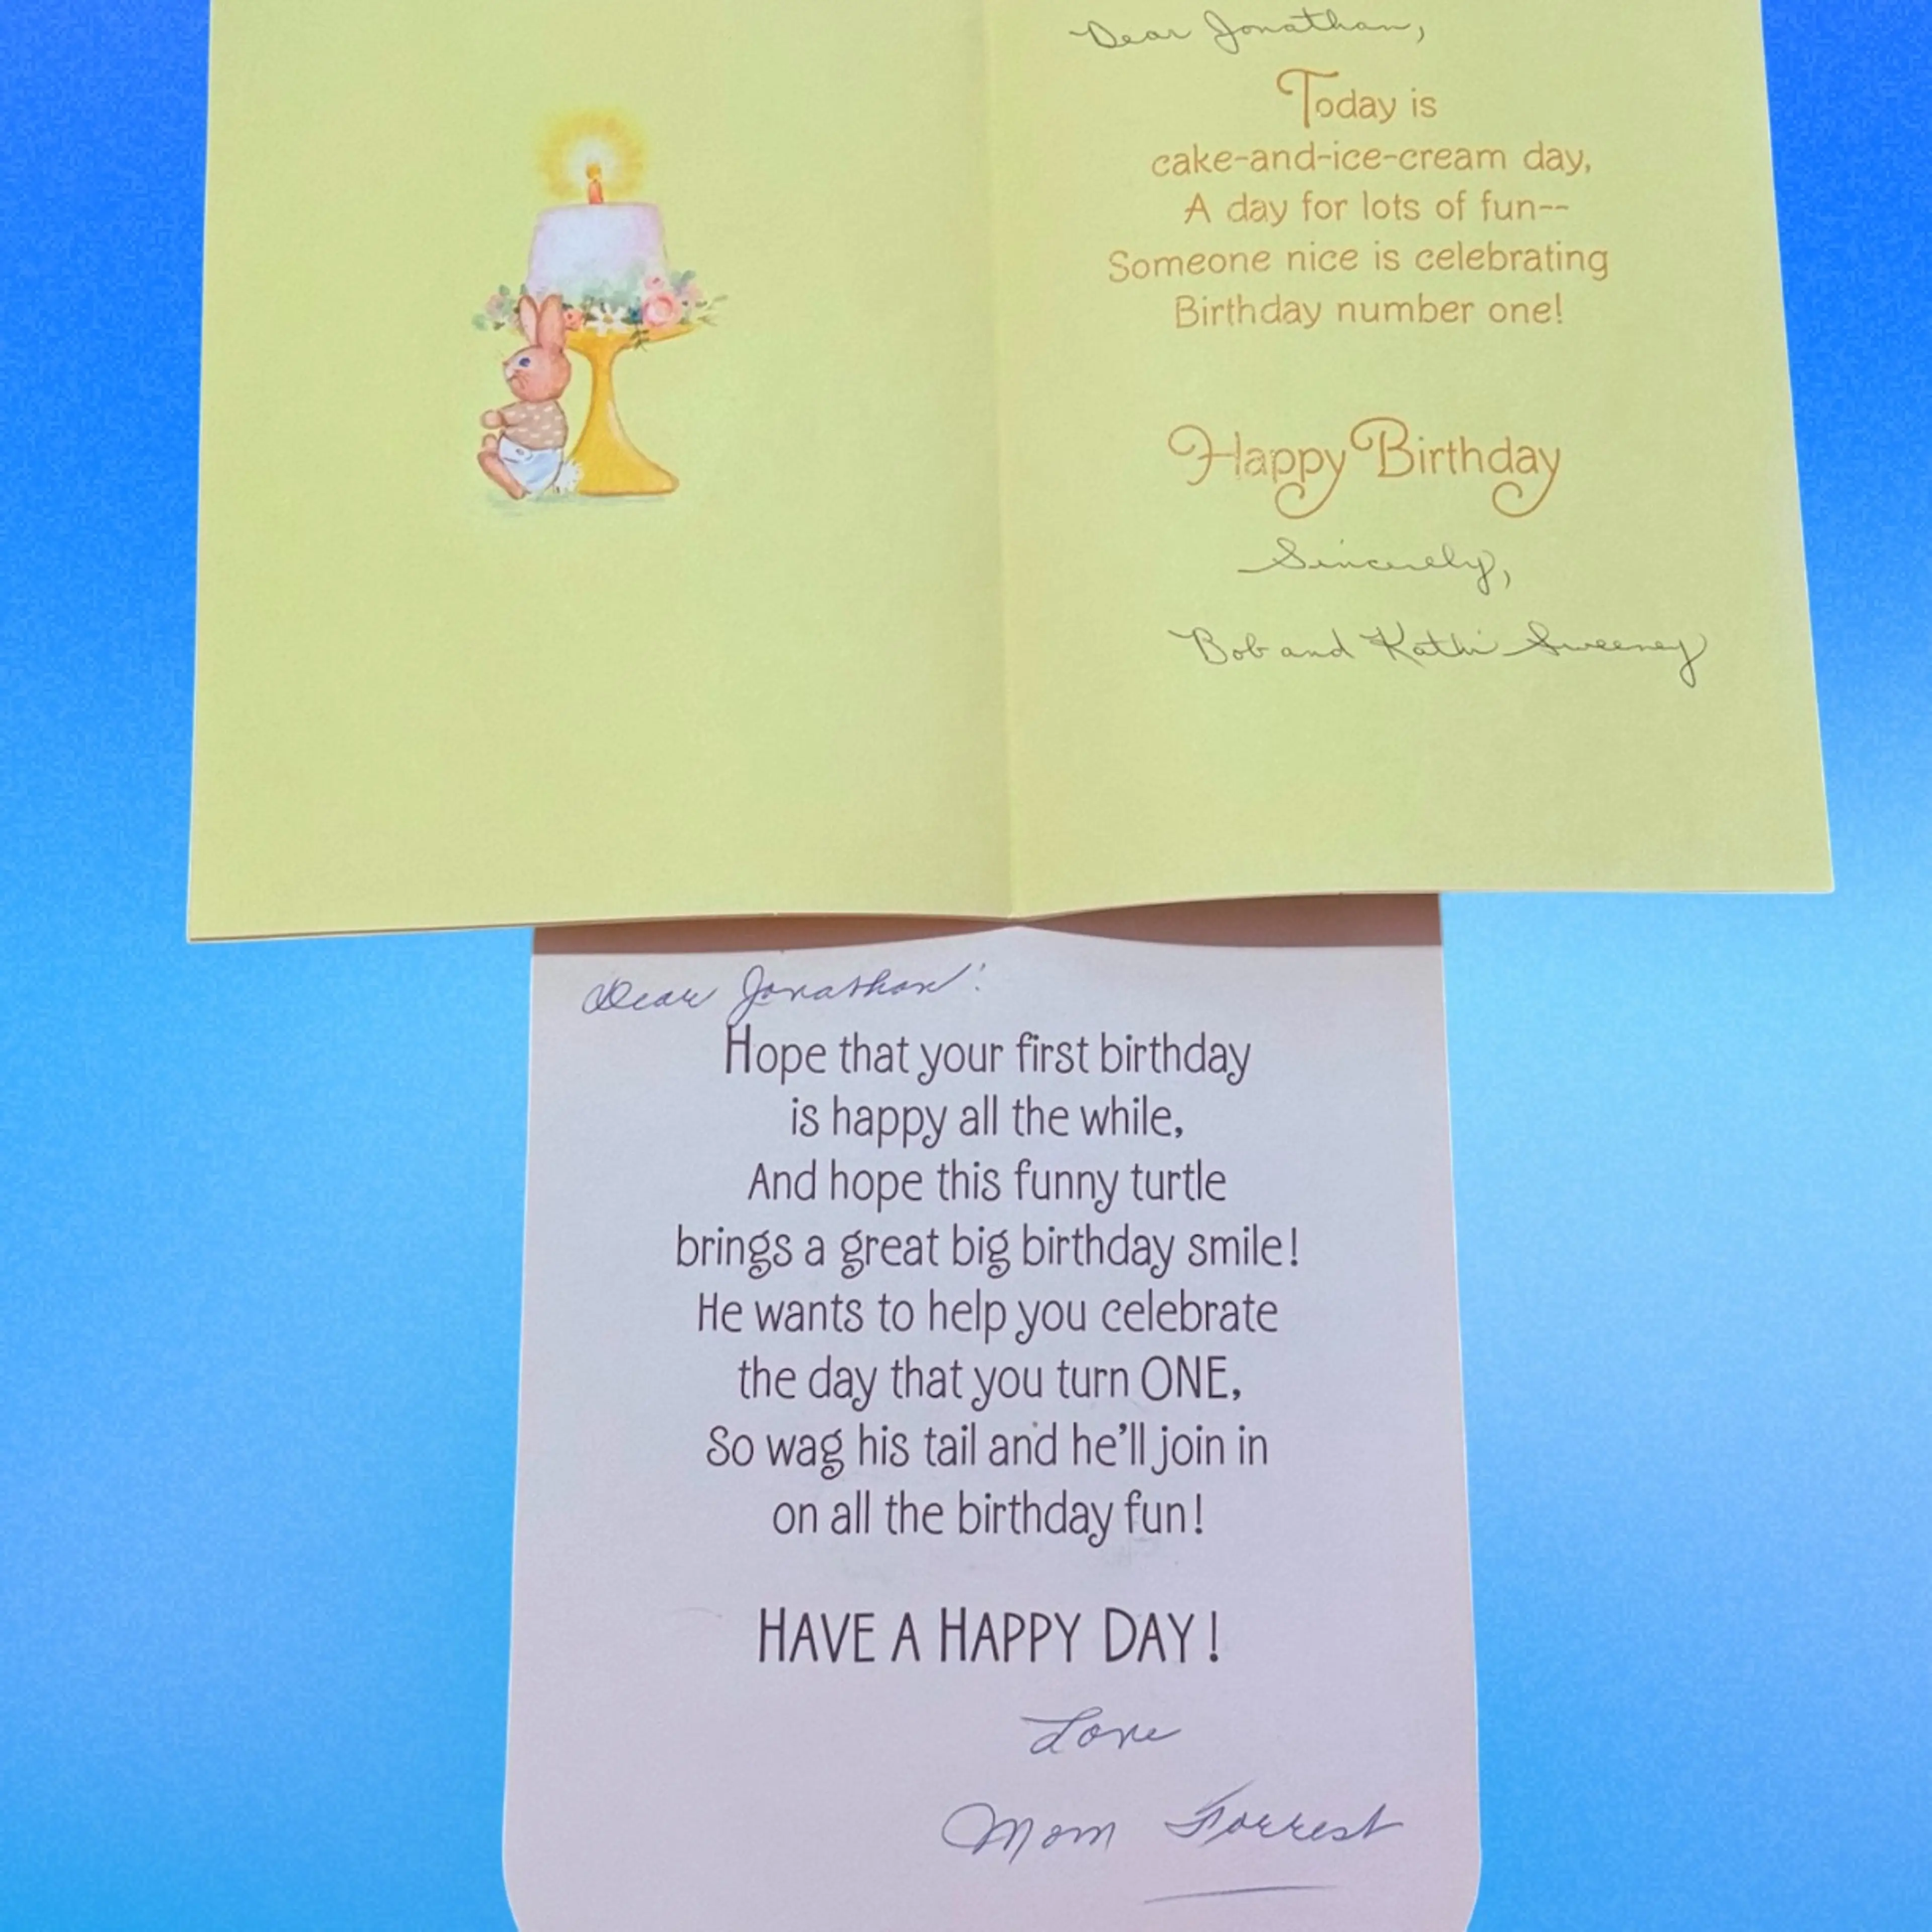 Dear Jonathan,
Today is
cake-and-ice-cream day,
A day for lots of fun--
Someone nice is celebrating
Birthday number one!
Happy Birthday
Sincerely,
Bob and Kathi Sweeney
Dear Jonathan:
Hope that your first birthday
is happy all the while,
And hope this funny turtle
brings a great big birthday smile!
He wants to help you celebrate
the day that you turn ONE,
So wag his tail and he'll join in
on all the birthday fun!
HAVE A HAPPY DAY!
Love
Mom Forrest